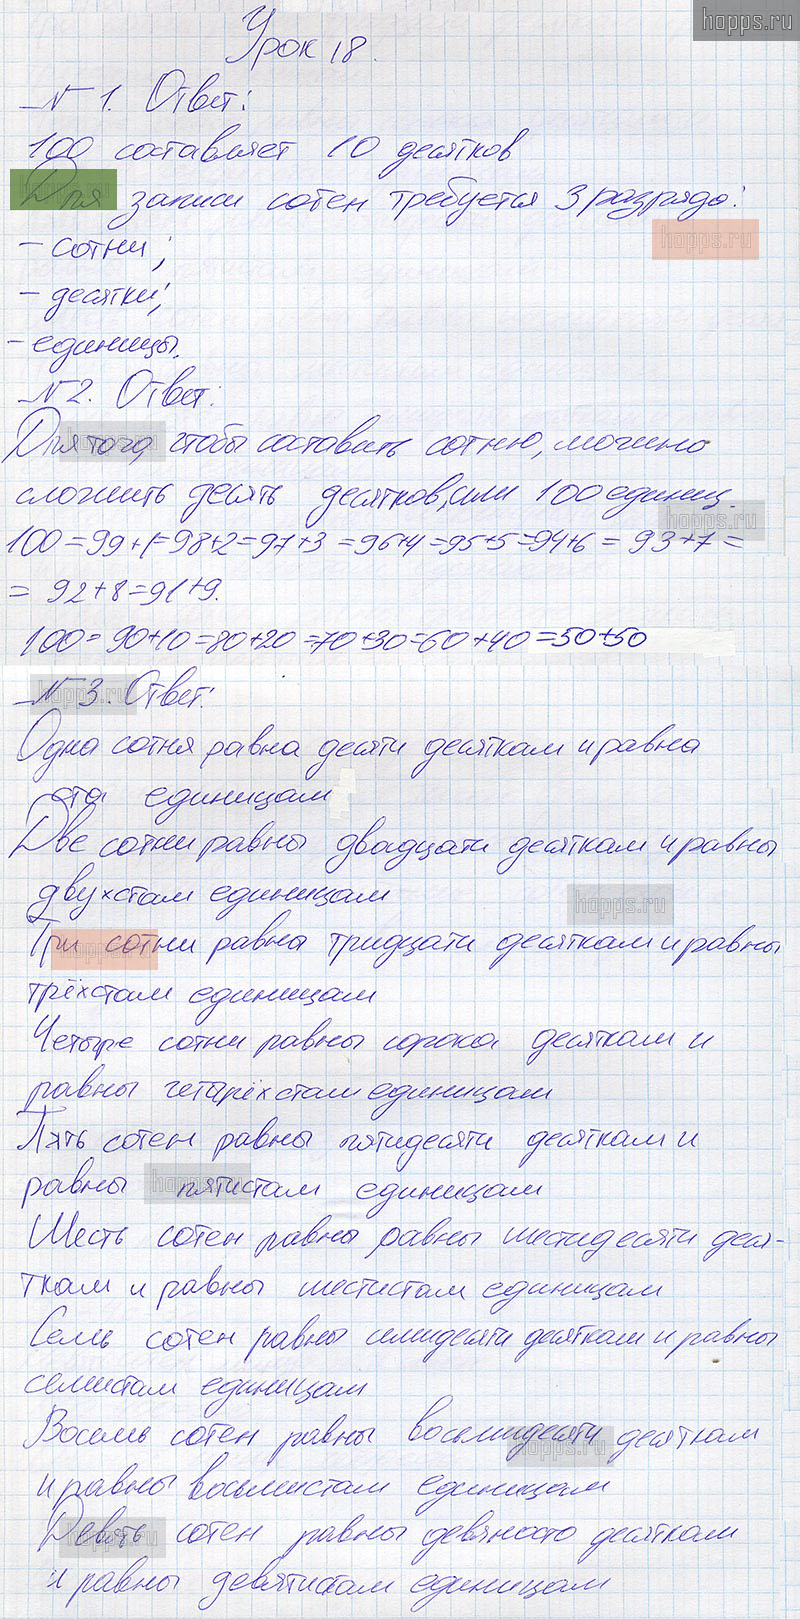 hopps.ru
Урок 18.
№ 1. Ответ:
100 составляет 10 десятков
Для записи сотен требуется 3 разряда:
hopps.ru
- сотни;
- десятки;
- единицы.
№ 2. Ответ:
Для того, чтобы составить сотню, можно
сложить десять десятков, или 100 единиц.
hopps.ru
100 = 99+1=98+2=97+3=96+4=95+5=94+6 = 93+7 =
= 92+8=91+9.
100= 90+10=80+20=70+30=60+40=50+50
№ 3. Ответ:
hopps.ru
Одна сотня равна десяти десяткам и равна
ста единицам
Две сотни равны двадцати десяткам и равны
двухстам единицам
hopps.ru
Три сотни равна тридцати десяткам и равны
трёхстам единицам
Четыре сотни равны сорока десяткам и
равны четырёхстам единицам
Пять сотен равны пятидесяти десяткам и
равны пятистам единицам
Шесть сотен равны равны шестидесяти деся-
ткам и равны шестистам единицам
Семь сотен равны семидесяти десяткам и равны
семистам единицам
Восемь сотен равны восьмидесяти десяткам
hopps.ru
и равны восьмистам единицам
Девять сотен равны девяносто десяткам
и равны девятистам единицам